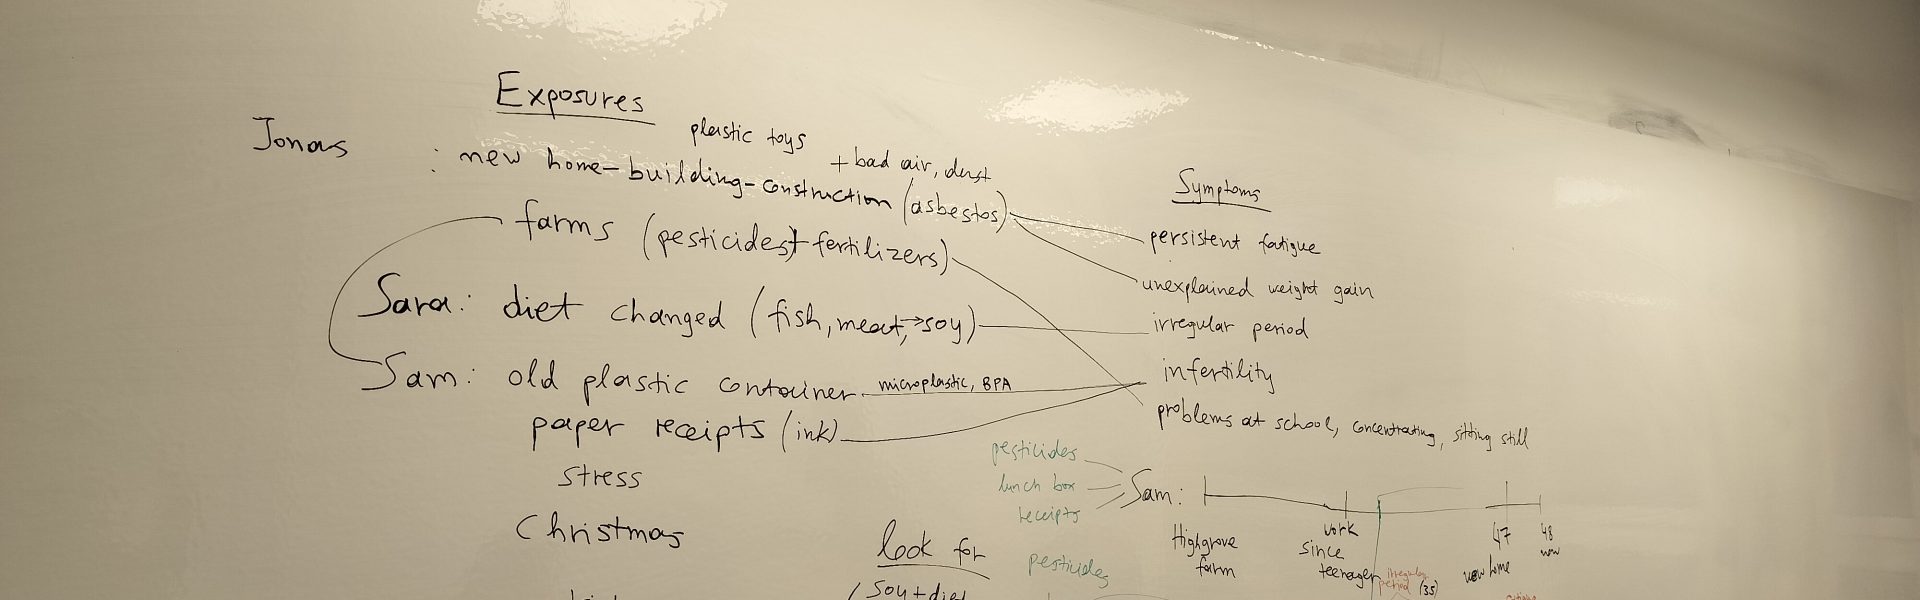 Exposures
Jonas
plastic toys
+ bad air, dust
: new home-building-construction (asbestos)
farms (pesticides)+ fertilizers)
Sara: diet changed (fish, meat, → soy)
Sam: old plastic container microplastic, BPA
paper receipts (ink)
stress
Christmas
Symptoms
persistent fatigue
unexplained weight gain
irregular period
infertility
problems at school, concentrating, sitting still
pesticides
lunch box
receipts
Sam:
Highgrove
farm
work
since
teenager
47
new home
48
now
irregular
period (35)
look for
pesticides
(soy + diet